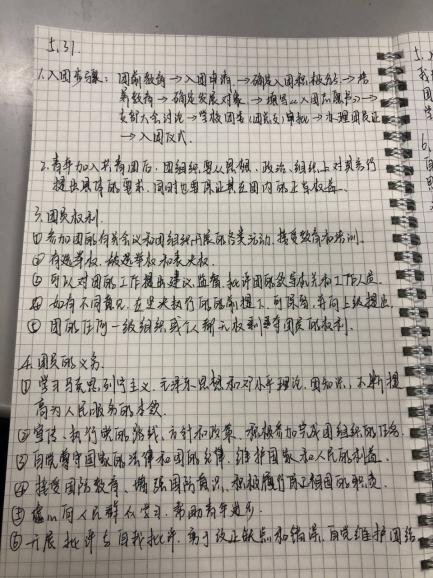 5.31.
1.入团步骤：团前教育→入团申请→确定入团积极分子→培
养教育→确定发展对象→填写《入团志愿书》→
支部大会讨论→学校团委(团总支)审批→办理团员证
→入团仪式.
2.青年加入共青团后,团组织要从思想、政治、组织上对其进行
提出具体的要求,同时也要保证其在团内的正当权益.
3.团员权利.
①参加团的有关会议和团组织开展的各类活动,接受教育和培训.
②有选举权、被选举权和表决权.
③可以对团的工作提出建议,监督、批评团的领导机关和工作人员.
④如有不同意见,在坚决执行的前提下,可保留,并向上级提出.
⑤团的任何一级组织或个人都无权剥夺团员的权利.
4.团员的义务.
①学习马克思列宁主义、毛泽东思想和邓小平理论,团知识,不断提
高为人民服务的本领.
②宣传、执行党的路线、方针和政策、积极参加完成团组织的任务.
③自觉遵守国家的法律和团的纪律,维护国家和人民的利益.
④接受国防教育、增强国防意识、积极履行保卫祖国的职责.
⑤虚心向人民群众学习,帮助青年进步.
⑥开展批评与自我批评,勇于改正缺点和错误,自觉维护团结